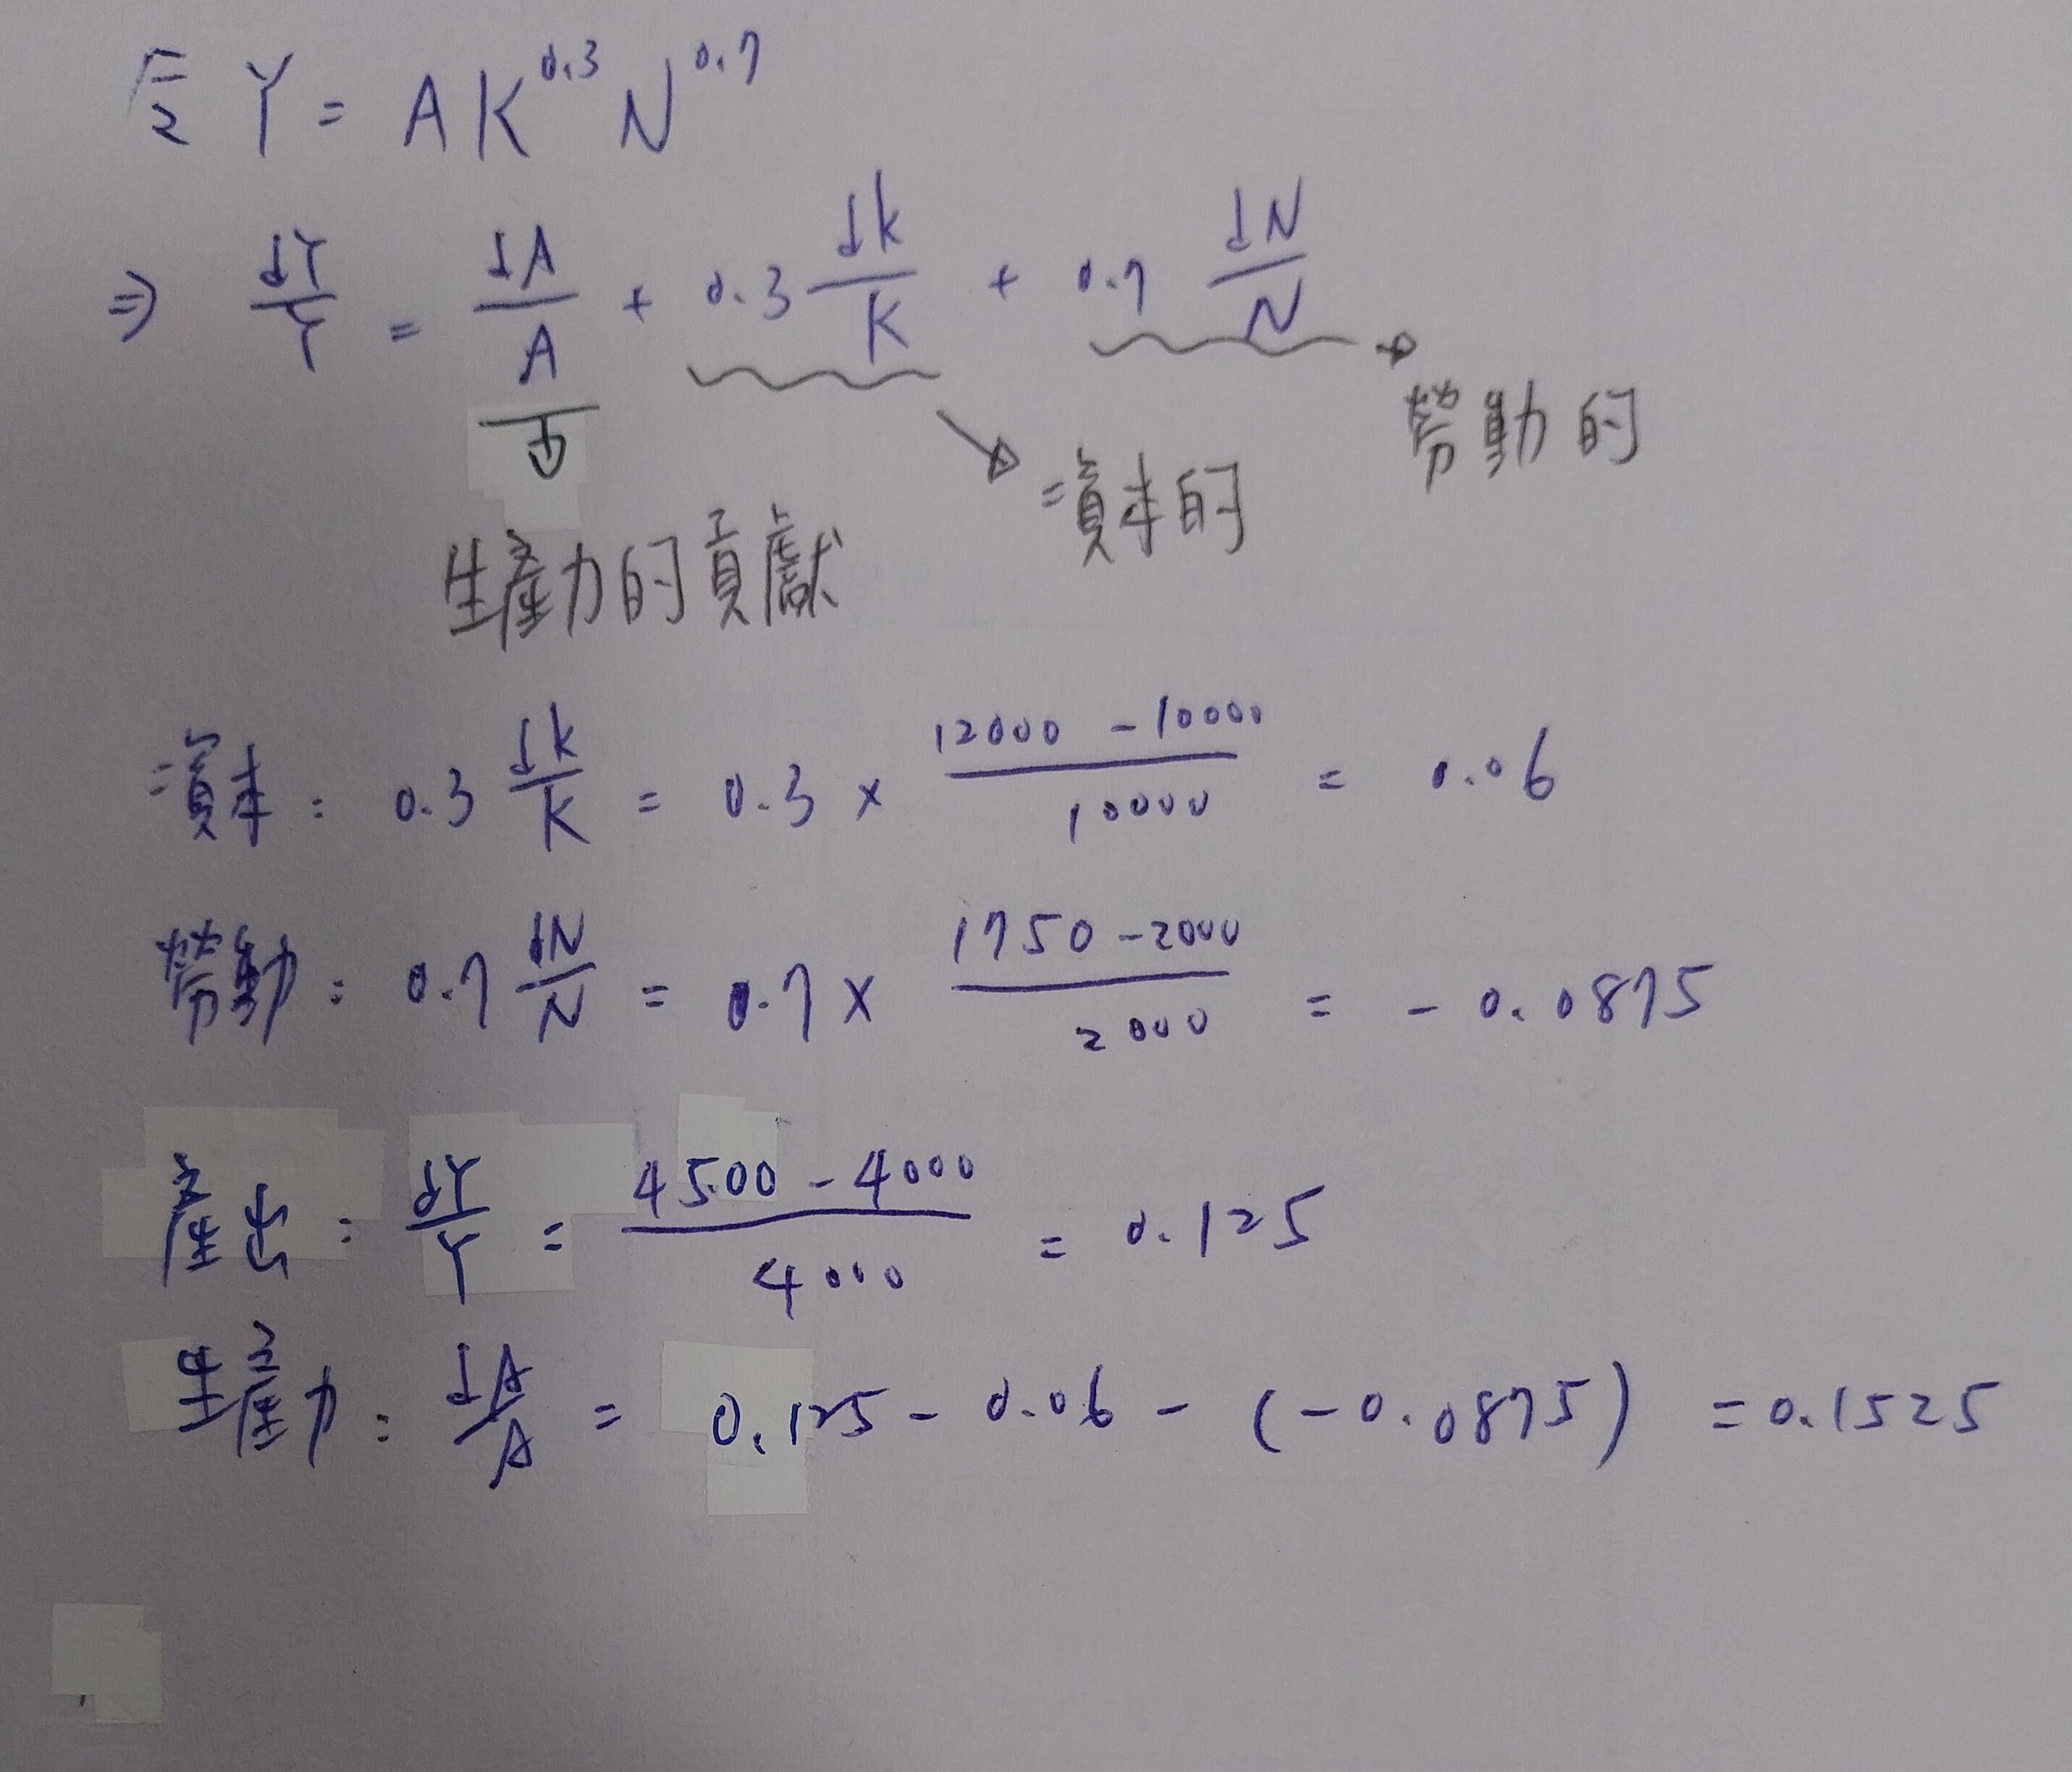 Y = AK^0.3 N^0.7
⇒ dY/Y = dA/A + 0.3 dk/K + 0.7 dN/N
勞動的
資本的
生產力的貢獻
資本: 0.3 dk/K = 0.3 × (12000 - 10000)/10000 = 0.06
勞動: 0.7 dN/N = 0.7 × (1750 - 2000)/2000 = - 0.0875
產出: dY/Y = (4500 - 4000)/4000 = 0.125
生產力: dA/A = 0.125 - 0.06 - (-0.0875) = 0.1525